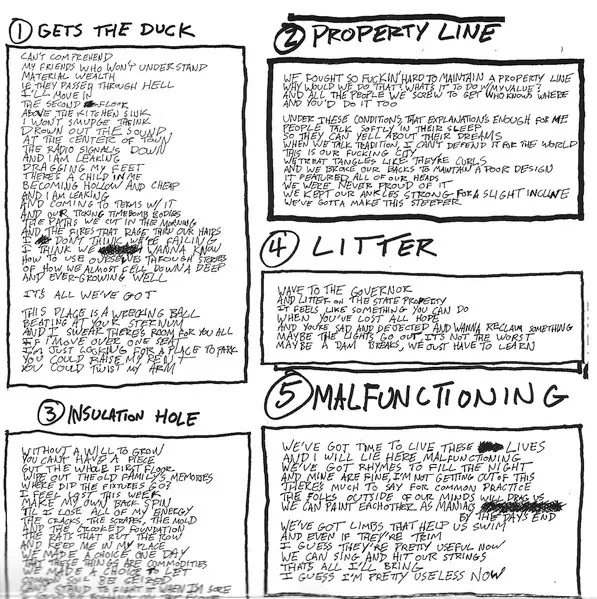 ① GETS THE DUCK
CAN'T COMPREHEND
MY FRIENDS WHO WON'T UNDERSTAND
MATERIAL WEALTH
IF THEY PASSED THROUGH HELL
I'LL MOVE IN
THE SECOND FLOOR
ABOVE THE KITCHEN SINK
I WON'T SMUDGE THE INK
DROWN OUT THE SOUND
AT THE CENTER OF TOWN
THE RADIO SIGNAL IS DOWN
AND I AM LEAKING
DRAGGING MY FEET
THERE'S A CHILD IN ME
BECOMING HOLLOW AND CHEAP
AND I AM LEAKING
AND COMING TO TERMS W/ IT
AND OUR TICKING TIMEBOMB BODIES
THE PATHS WE CUT IN THE MORNING
AND THE FIRES THAT RAGE THRU OUR HAIRS
I DON'T THINK WE'RE FAILING
I THINK WE WANNA KNOW
HOW TO USE OURSELVES THROUGH STORIES
OF HOW WE ALMOST FELL DOWN A DEEP
AND EVER-GROWING WELL
IT'S ALL WE'VE GOT
THIS PLACE IS A WRECKING BALL
BEATING AT YOUR STERNUM
AND I SWEAR THERE'S ROOM FOR YOU ALL
IF I MOVE OVER ONE SEAT
I'M JUST LOOKING FOR A PLACE TO PARK
YOU COULD RAISE MY RENT
YOU COULD TWIST MY ARM
② PROPERTY LINE
WE FOUGHT SO FUCKIN' HARD TO MAINTAIN A PROPERTY LINE
WHY WOULD WE DO THAT? WHAT'S IT TO DO W/ MY VALUE?
AND ALL THE PEOPLE WE SCREW TO GET WHO KNOWS WHERE
AND YOU'D DO IT TOO
UNDER THESE CONDITIONS, THAT EXPLANATION'S ENOUGH FOR ME
PEOPLE TALK SOFTLY IN THEIR SLEEP
SO THEY CAN YELL ABOUT THEIR DREAMS
WHEN WE TALK TRADITION, I CAN'T DEFEND IT FOR THE WORLD
THIS IS OUR FUCKING CITY
WE TREAT TANGLES LIKE THEY'RE CURLS
AND WE BROKE OUR BACKS TO MAINTAIN A POOR DESIGN
IT FEATURED ALL OF OUR HEADS
WE WERE NEVER PROUD OF IT
WE KEPT OUR ANKLES STRONG FOR A SLIGHT INCLINE
WE'VE GOTTA MAKE THIS STEEPER
③ INSULATION HOLE
WITHOUT A WILL TO GROW
YOU CAN'T HAVE A PIECE
GUT THE WHOLE FIRST FLOOR
WIPE OUT THE OLD FAMILY'S MEMORIES
WHERE DID THE FIXTURES GO?
I FEEL LOST THIS WEEK
MAKE MY OWN BACK SPIN
TIL I LOSE ALL OF MY ENERGY
THE CRACKS, THE SCRAPES, THE MOLD
AND THE CROOKED FOUNDATION
THE RATS THAT RUT THE ROW
AND KEEP ME IN MY PLACE
WE MADE A CHOICE ONE DAY
THAT THESE THINGS ARE COMMODITIES
WE MADE A CHOICE TO LET
COMMON SOIL BE SEIZED
CAN'T STAND TO FIGHT IT WHEN I'M SORE
④ LITTER
WAVE TO THE GOVERNOR
AND LITTER ON THE STATE PROPERTY
IT FEELS LIKE SOMETHING YOU CAN DO
WHEN YOU'VE LOST ALL HOPE
AND YOU'RE SAD AND DEJECTED AND WANNA RECLAIM SOMETHING
MAYBE THE LIGHTS GO OUT, IT'S NOT THE WORST
MAYBE A DAM BREAKS, WE JUST HAVE TO LEARN
⑤ MALFUNCTIONING
WE'VE GOT TIME TO LIVE THESE LIVES
AND I WILL LIE HERE MALFUNCTIONING
WE'VE GOT RHYMES TO FILL THE NIGHT
AND MINE ARE FINE, I'M NOT GETTING OUT OF THIS
THERE'S MUCH TO SAY FOR COMMON PRACTICE
THE FOLKS OUTSIDE OF OUR MINDS WILL DRAG US
WE CAN PAINT EACHOTHER AS MANIACS
BY THE DAY'S END
WE'VE GOT LIMBS THAT HELP US SWIM
AND EVEN IF THEY'RE TRIM
I GUESS THEY'RE PRETTY USEFUL NOW
WE CAN SING AND HIT OUR STRINGS
THATS ALL I'LL BRING
I GUESS I'M PRETTY USELESS NOW